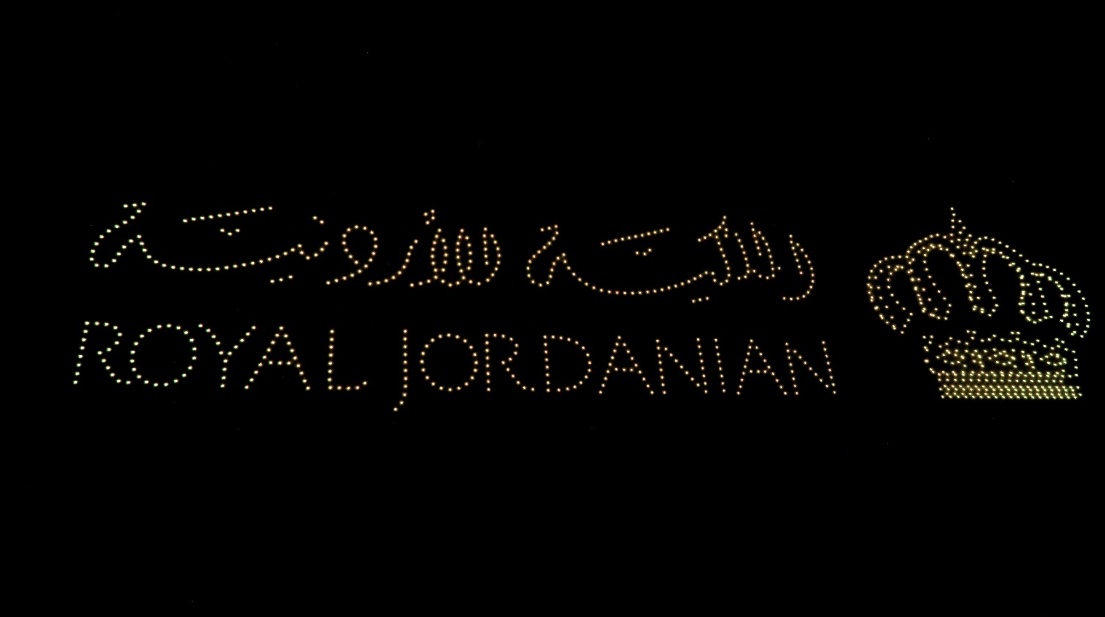 الملكية الأردنية
ROYAL JORDANIAN